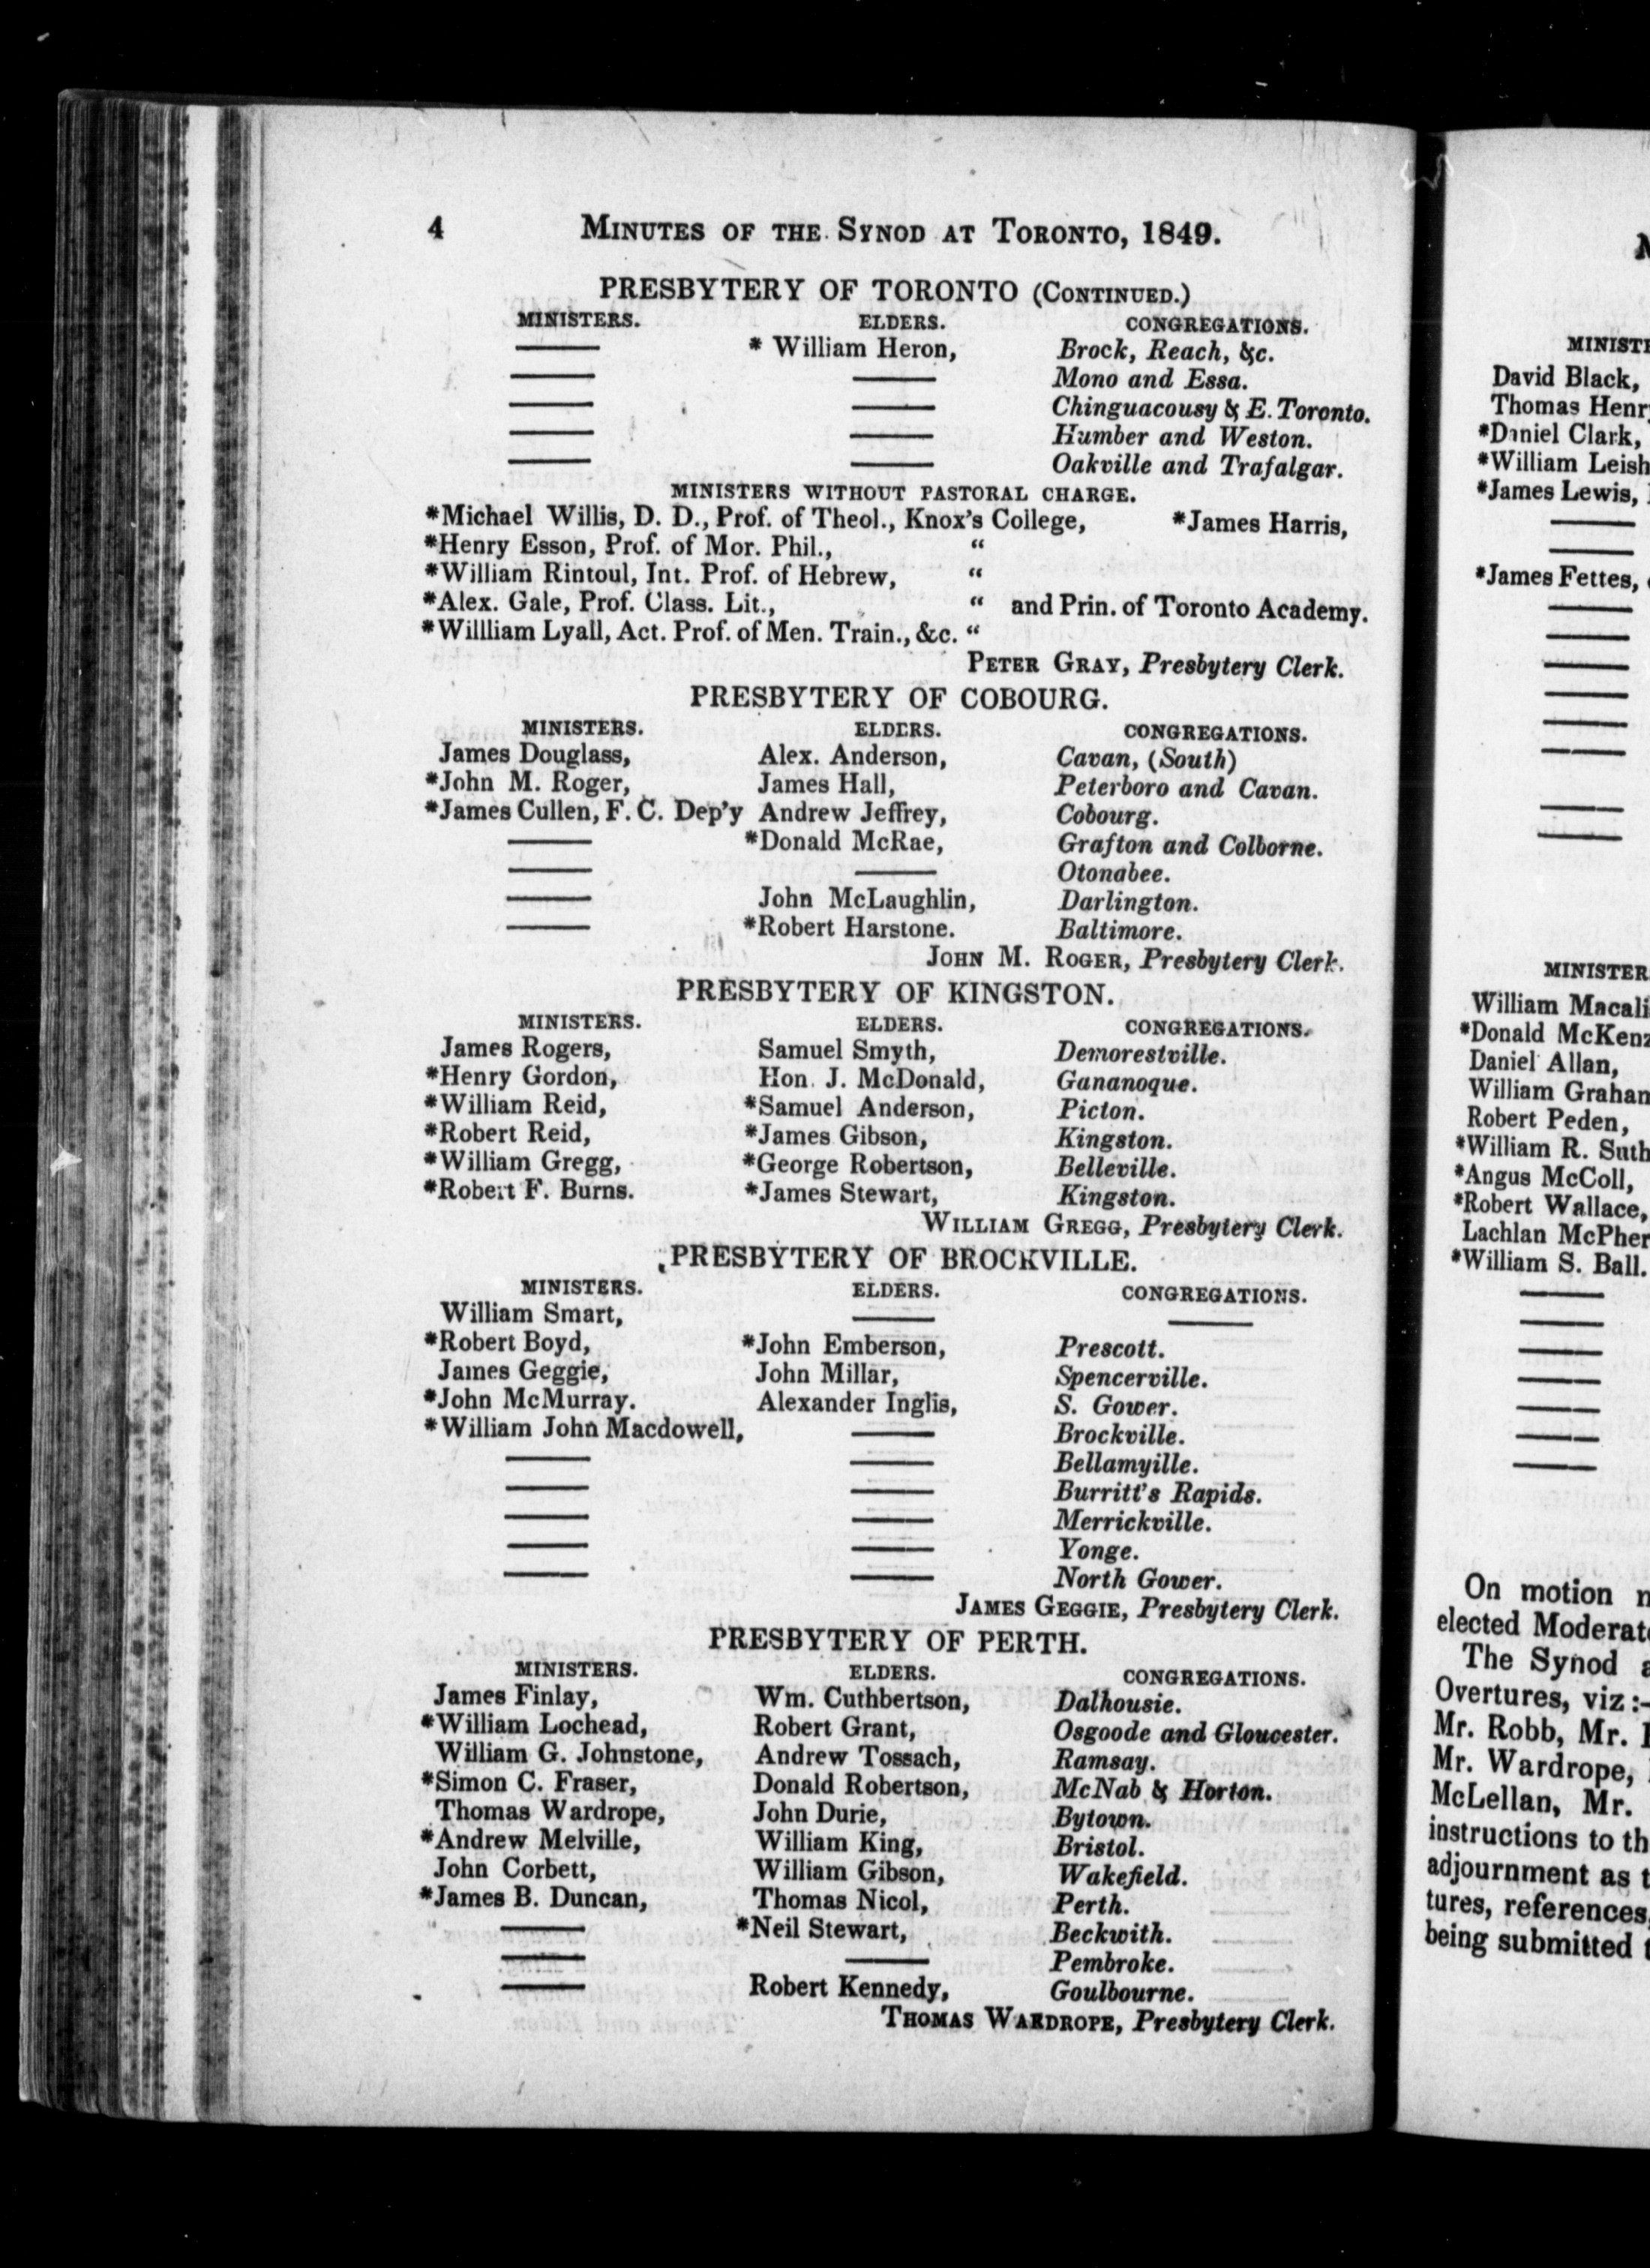 4 MINUTES OF THE SYNOD AT TORONTO, 1849.
PRESBYTERY OF TORONTO (CONTINUED.)
MINISTERS. ELDERS. CONGREGATIONS.
——— * William Heron, Brock, Reach, &c.
——— ——— Mono and Essa.
——— ——— Chinguacousy & E. Toronto.
——— ——— Humber and Weston.
——— ——— Oakville and Trafalgar.
MINISTERS WITHOUT PASTORAL CHARGE.
*Michael Willis, D. D., Prof. of Theol., Knox's College, *James Harris,
*Henry Esson, Prof. of Mor. Phil., “
*William Rintoul, Int. Prof. of Hebrew, “
*Alex. Gale, Prof. Class. Lit., “ and Prin. of Toronto Academy.
*Willliam Lyall, Act. Prof. of Men. Train., &c. “
PETER GRAY, Presbytery Clerk.
PRESBYTERY OF COBOURG.
MINISTERS. ELDERS. CONGREGATIONS.
James Douglass, Alex. Anderson, Cavan, (South)
*John M. Roger, James Hall, Peterboro and Cavan.
*James Cullen, F. C. Dep'y Andrew Jeffrey, Cobourg.
——— *Donald McRae, Grafton and Colborne.
——— ——— Otonabee.
——— John McLaughlin, Darlington.
——— *Robert Harstone. Baltimore.
JOHN M. ROGER, Presbytery Clerk.
PRESBYTERY OF KINGSTON.
MINISTERS. ELDERS. CONGREGATIONS.
James Rogers, Samuel Smyth, Demorestville.
*Henry Gordon, Hon. J. McDonald, Gananoque.
*William Reid, *Samuel Anderson, Picton.
*Robert Reid, *James Gibson, Kingston.
*William Gregg, *George Robertson, Belleville.
*Robert F. Burns. *James Stewart, Kingston.
WILLIAM GREGG, Presbytery Clerk.
PRESBYTERY OF BROCKVILLE.
MINISTERS. ELDERS. CONGREGATIONS.
William Smart, ——— ———
*Robert Boyd, *John Emberson, Prescott.
James Geggie, John Millar, Spencerville.
*John McMurray. Alexander Inglis, S. Gower.
*William John Macdowell, ——— Brockville.
——— ——— Bellamyille.
——— ——— Burritt's Rapids.
——— ——— Merrickville.
——— ——— Yonge.
——— ——— North Gower.
JAMES GEGGIE, Presbytery Clerk.
PRESBYTERY OF PERTH.
MINISTERS. ELDERS. CONGREGATIONS.
James Finlay, Wm. Cuthbertson, Dalhousie.
*William Lochead, Robert Grant, Osgoode and Gloucester.
William G. Johnstone, Andrew Tossach, Ramsay.
*Simon C. Fraser, Donald Robertson, McNab & Horton.
Thomas Wardrope, John Durie, Bytown.
*Andrew Melville, William King, Bristol.
John Corbett, William Gibson, Wakefield.
*James B. Duncan, Thomas Nicol, Perth.
——— *Neil Stewart, Beckwith.
——— ——— Pembroke.
——— Robert Kennedy, Goulbourne.
THOMAS WARDROPE, Presbytery Clerk.
MINIST
David Black,
Thomas Henr
*Daniel Clark,
*William Leish
*James Lewis,
*James Fettes,
MINISTER
William Macali
*Donald McKenz
Daniel Allan,
William Graham
Robert Peden,
*William R. Suth
*Angus McColl,
*Robert Wallace,
Lachlan McPher
*William S. Ball.
On motion
elected Moderat
The Synod
Overtures, viz:-
Mr. Robb, Mr.
Mr. Wardrope,
McLellan, Mr.
instructions to th
adjournment as t
tures, references,
being submitted t